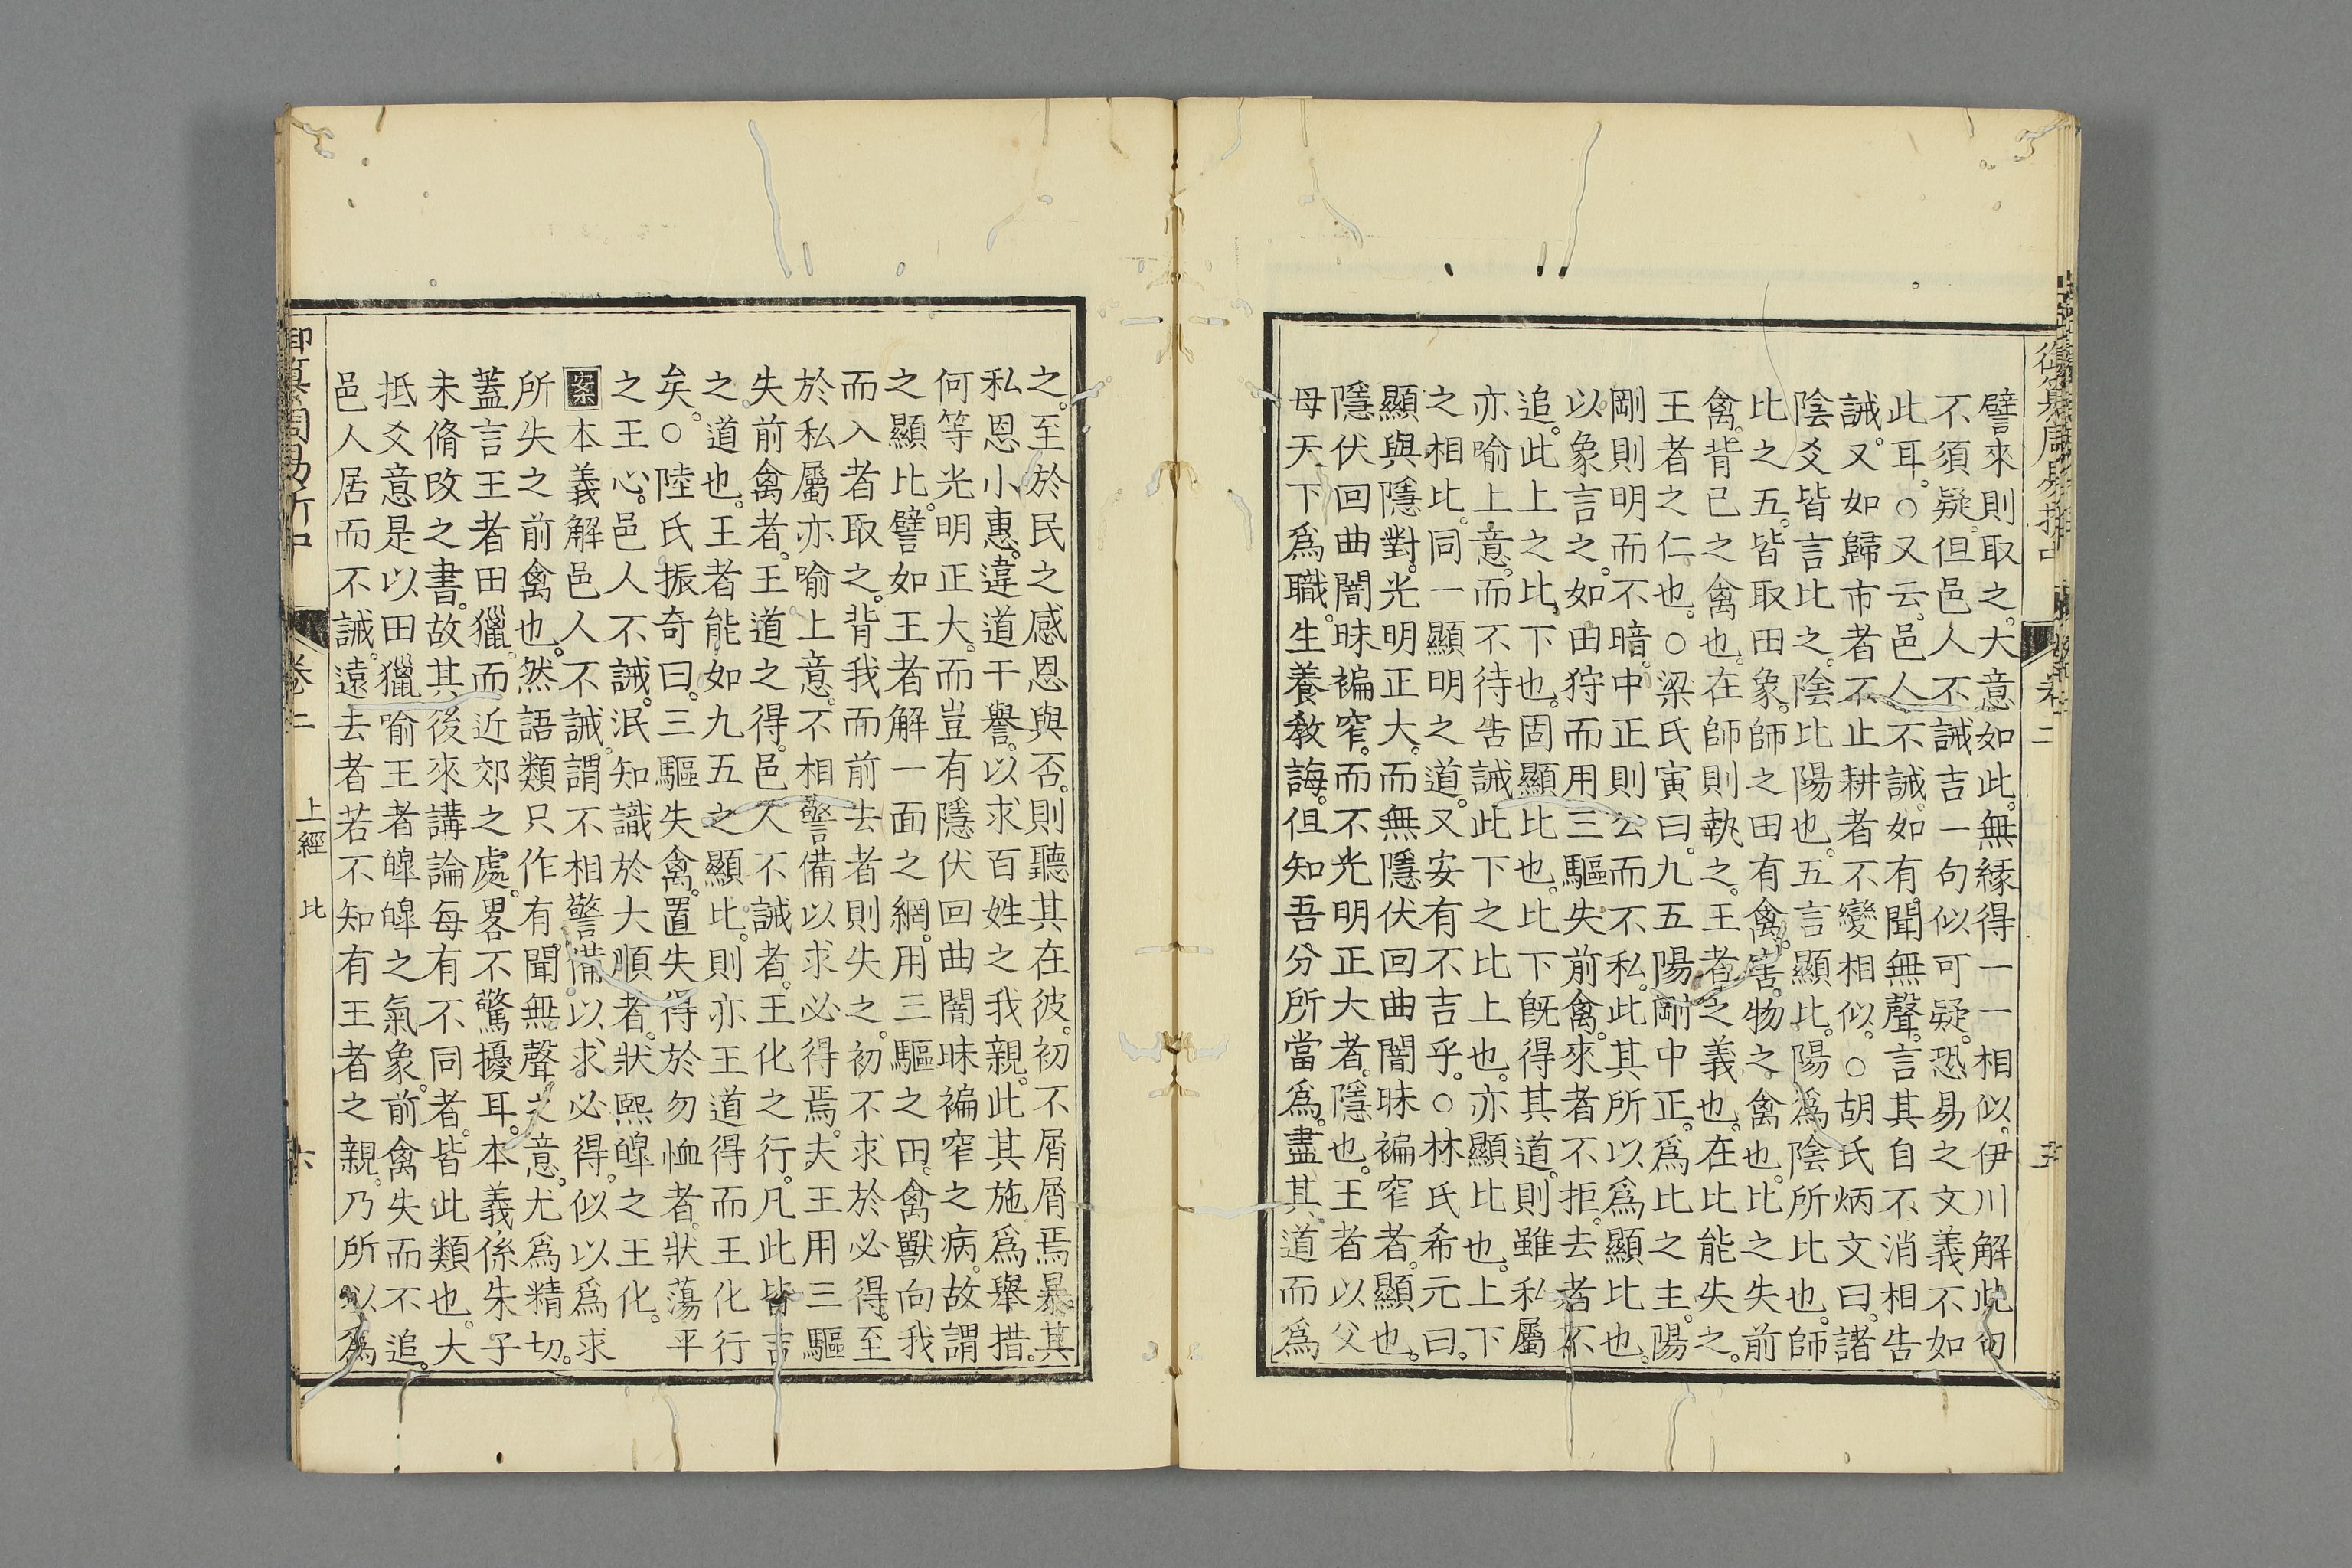 御纂周易折中
卷二
譬來則取之。大意如此。無緣得一一相似。伊川解此句
不須疑。但邑人不誡吉一句似可疑。恐易之文義不如
此耳。○又云。邑人不誡。如有聞無聲。言其自不消相告
誡。又如歸市者不止耕者不變相似。○胡氏炳文曰。諸
陰爻皆言比之。陰比陽也。五言顯比。陽爲陰所比也。師
比之五。皆取田象。師之田有禽。害物之禽也。比之失前
禽。背已之禽也。在師則執之。王者之義也。在比能失之。
王者之仁也。○梁氏寅曰。九五陽剛中正。爲比之主。陽
剛則明而不暗。中正則公而不私。此其所以爲顯比也。
以象言之。如田狩而用三驅失前禽。來者不拒。去者不
追。此上之比下也。固顯比也。比下旣得其道。則雖私屬
亦喻上意。而不待告誡。此下之比上也。亦顯比也。上下
之相比。同一顯明之道。又安有不吉乎。○林氏希元曰。
顯與隱對。光明正大。而無隱伏回曲闇昧褊窄者。顯也。
隱伏回曲闇昧褊窄。而不光明正大者。隱也。王者以父
母天下爲職。生養敎誨。但知吾分所當爲。盡其道而爲
之。至於民之感恩與否。則聽其在彼。初不屑屑焉暴其
私恩小惠。違道干譽。以求百姓之我親。此其施爲舉措。
何等光明正大。而豈有隱伏回曲闇昧褊窄之病。故謂
之顯比。譬如王者解一面之網。用三驅之田。禽獸向我
而入者取之。背我而前去者則失之。初不求於必得。至
於私屬亦喻上意。不相警備以求必得焉。夫王用三驅
失前禽者。王道之得。邑人不誡者。王化之行。凡此皆吉
之道也。王者能如九五之顯比。則亦王道得而王化行
矣。○陸氏振奇曰。三驅失禽。置失得於勿恤者。狀蕩平
之王心。邑人不誡。泯知識於大順者。狀熙皥之王化。
案本義解邑人不誡。謂不相警備。以求必得。似以爲求
所失之前禽也。然語類只作有聞無聲之意。尤爲精切。
蓋言王者田獵。而近郊之處。畧不驚擾耳。本義係朱子
未脩改之書。故其後來講論每有不同者。皆此類也。大
抵爻意是以田獵喻王者皥皥之氣象。前禽失而不追。
邑人居而不誡。遠去者若不知有王者之親。乃所以爲
御纂周易折中
卷二
上經
比